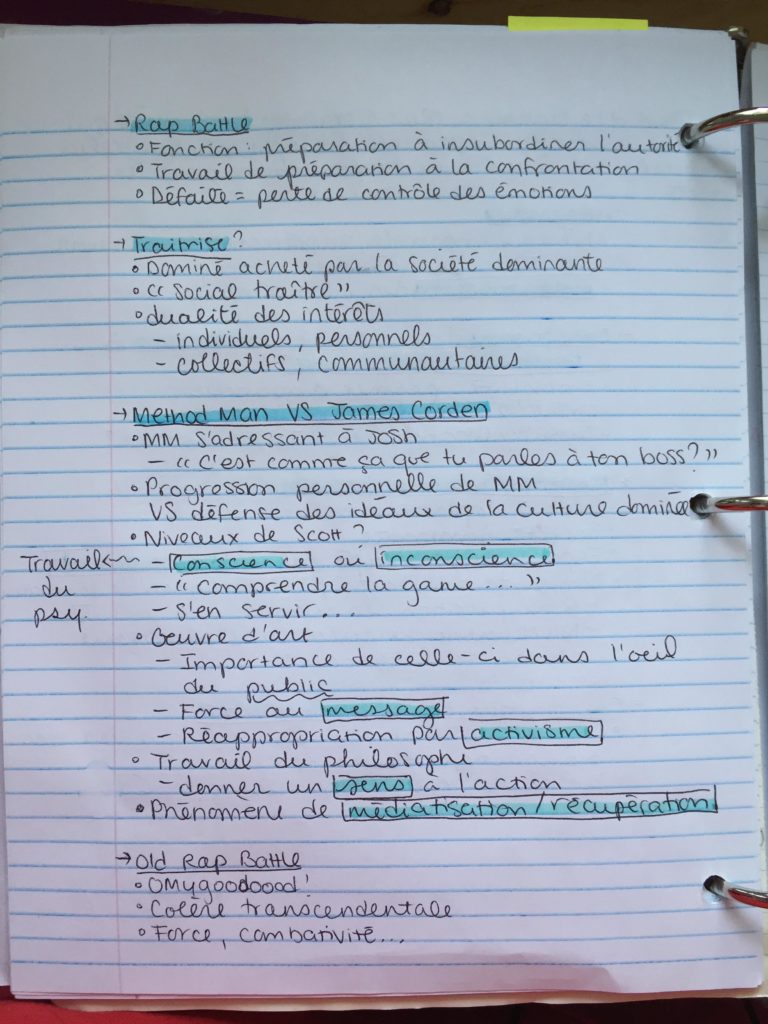 → Rap Battle
° Fonction : préparation à insubordiner l'autorité
° Travail de préparation à la confrontation
° Défaite = perte de contrôle des émotions
→ Traîtrise ?
° Dominé acheté par la société dominante
° « social traître »
° dualité des intérêts
- individuels, personnels
- collectifs, communautaires
→ Method Man VS James Corden
° MM s'adressant à Josh
- « C'est comme ça que tu parles à ton boss? »
° Progression personnelle de MM
VS défense des idéaux de la culture dominée
° Niveaux de Scott ?
Travail ← - Conscience ou inconscience
du - « Comprendre la game... »
psy. - S'en servir...
° Oeuvre d'art
- Importance de celle-ci dans l'oeil
du public
- Force au message
- Réappropriation par activisme
° Travail du philosophe
- donner un sens à l'action
° Phénomène de médiatisation/récupération
→ Old Rap Battle
° OMygoodoood!
° Colère transcendentale
° Force, combativité...